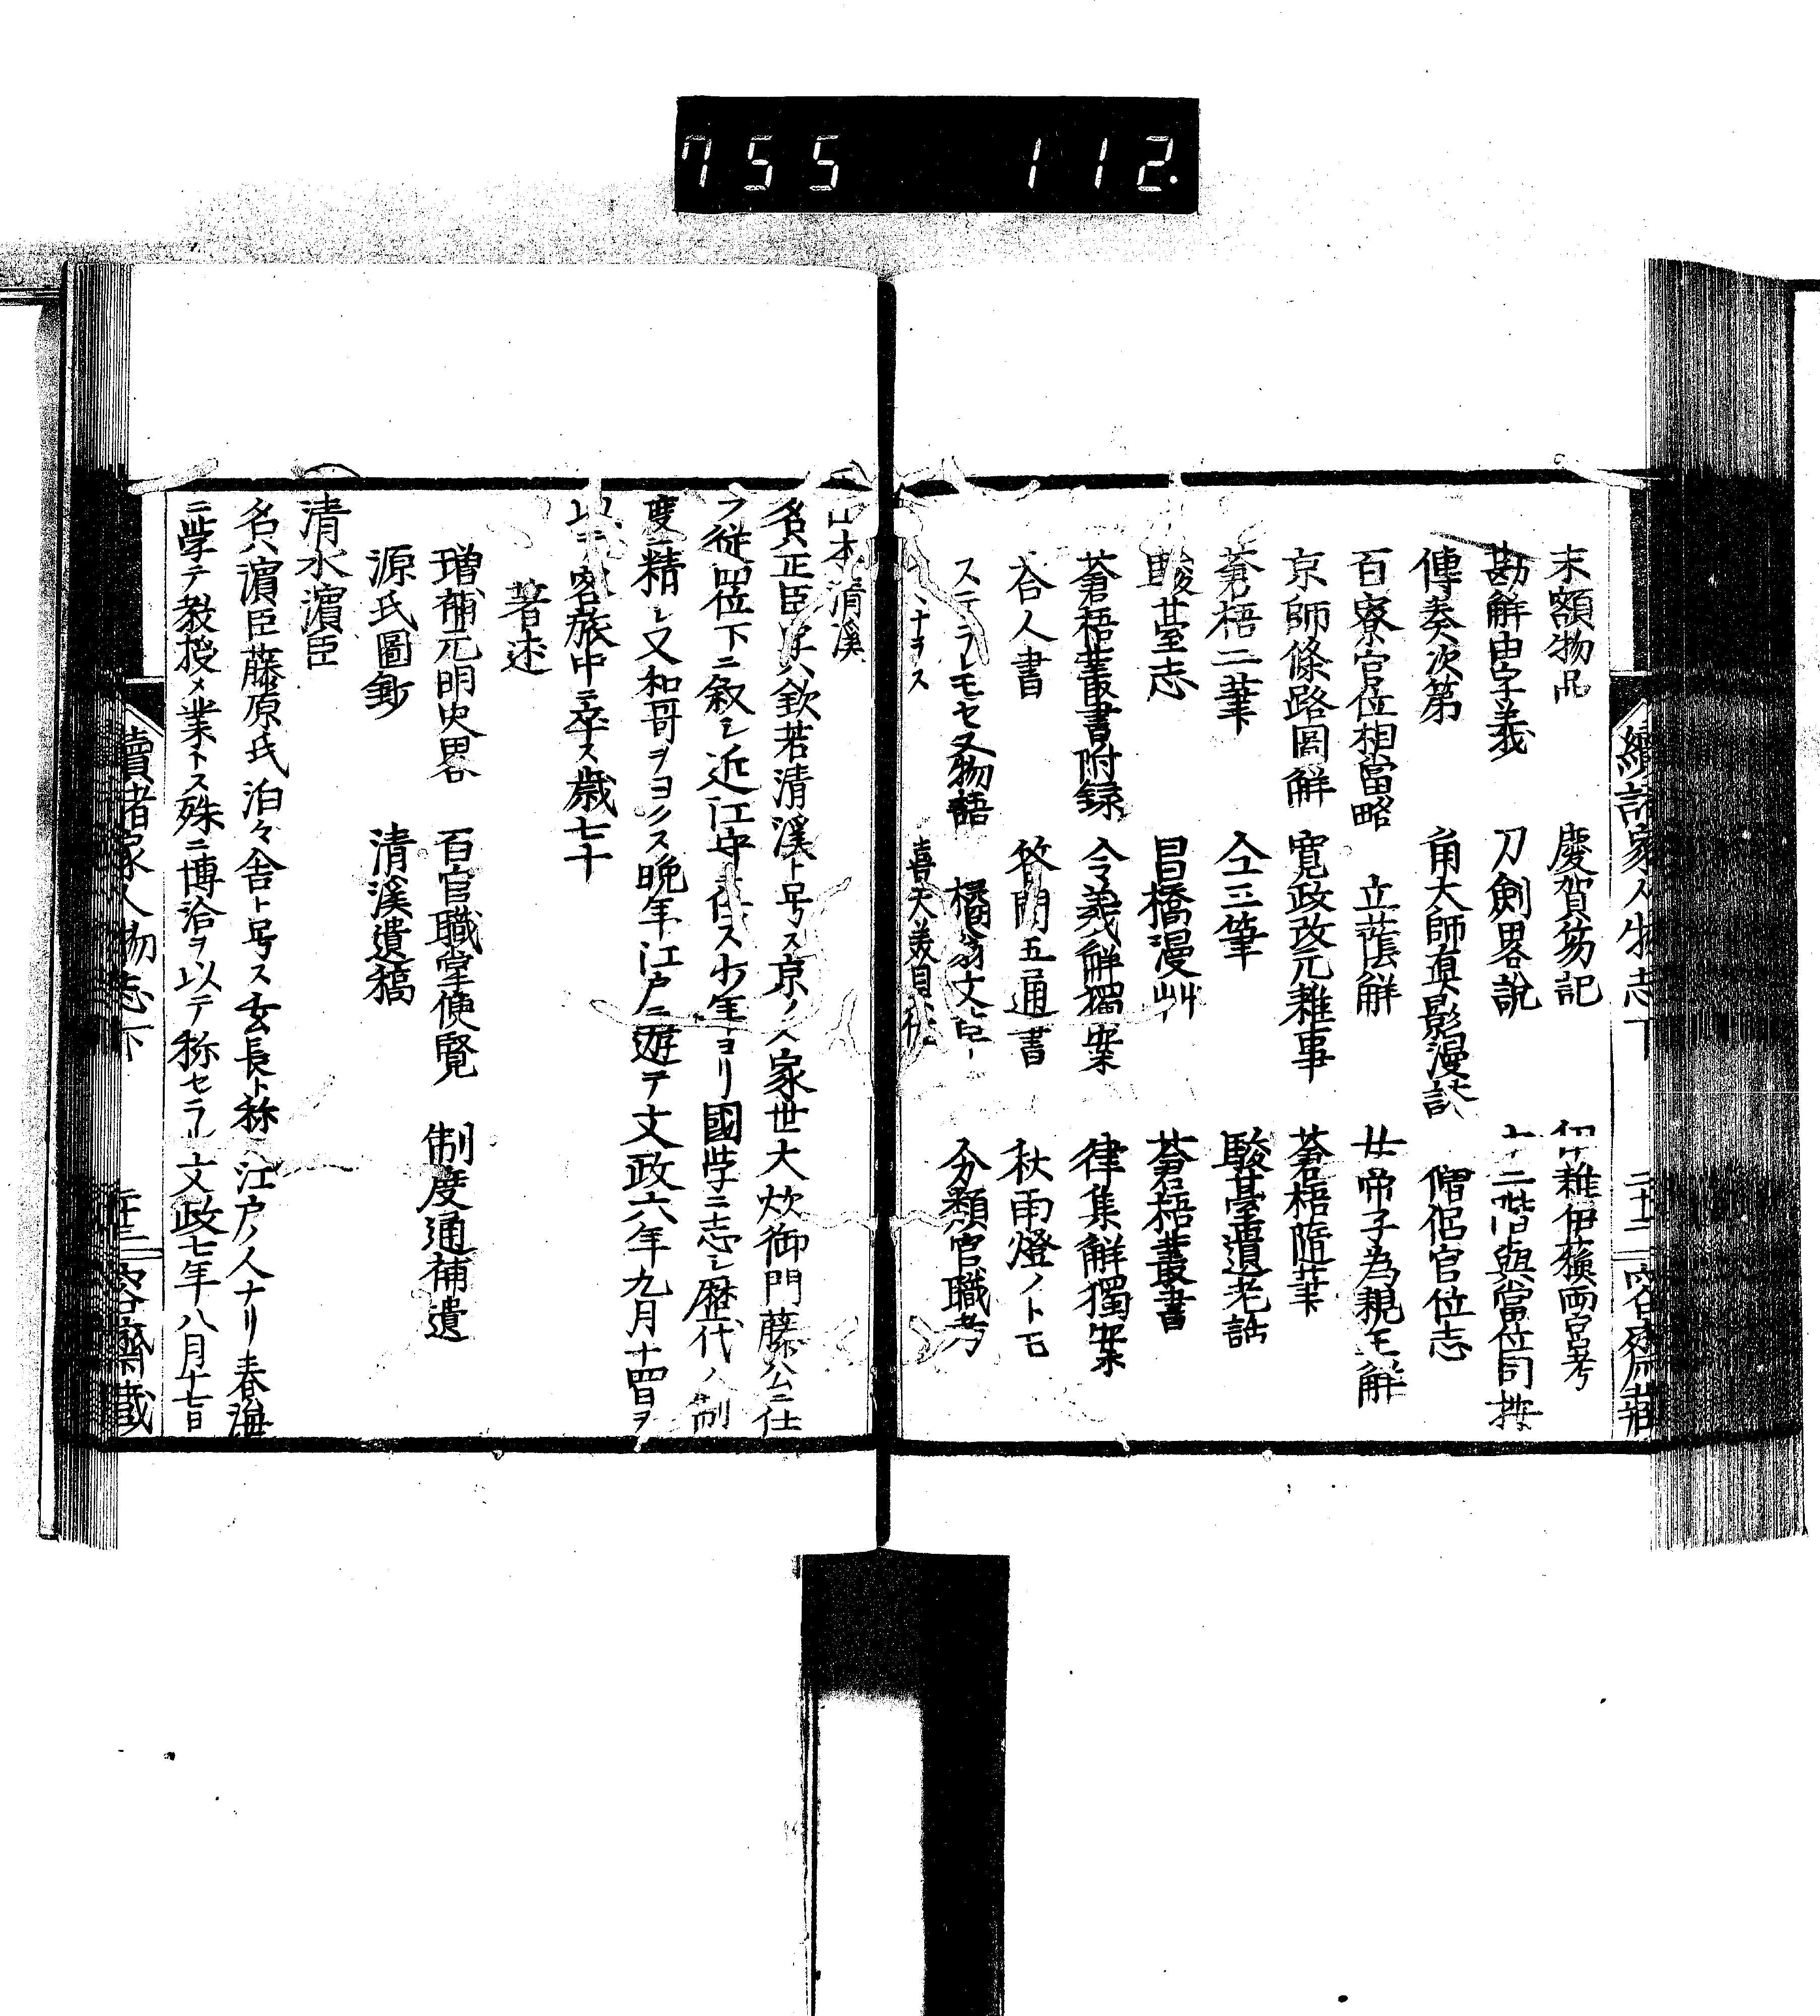 755 112.
續諸家人物志下 二十二 容齋藏
末額物品 慶賀笏記 伊雜伊蘓兩宮考
勘解由字義 刀劍畧説 十二階與當位同按
傳奏次第 角大師真影漫誌 僧侶官位志
百寮官位相當略 立蔭解 女帝子為親王解
京師條路圖解 寛政改元雜事 蒼梧随筆
蒼梧二筆 仝三筆 駿臺遺老話
駿臺志 昌橋漫艸 蒼梧叢書
蒼梧叢書附録 令義解獨案 律集解獨案
答人書 答問五通書 秋雨燈ノトモ
ステラレモセヌ物語 橘翁文 分類官職考
ナヲス 喜天美
山本清溪
名ハ正臣字ハ欽若清溪ト号ス京ノ人家世大炊御門藤公ニ仕
フ従四位下ニ叙シ近江守ニ任ス少年ヨリ國学ニ志シ歴代ノ制
度ニ精シ又和哥ヲヨクス晩年江戸ニ遊テ文政六年九月十四日ヲ
以テ客旅中ニ卒ス歳七十
著述
増補元明史畧 百官職掌便覧 制度通補遺
源氏圖鈔 清溪遺稿
清水濱臣
名ハ濱臣藤原氏泊々舎ト号ス玄長ト称ス江戸ノ人ナリ春海
ニ学テ教授ヲ業トス殊ニ博洽ヲ以テ称セラル文政七年八月十七日
續諸家人物志下 容齋藏